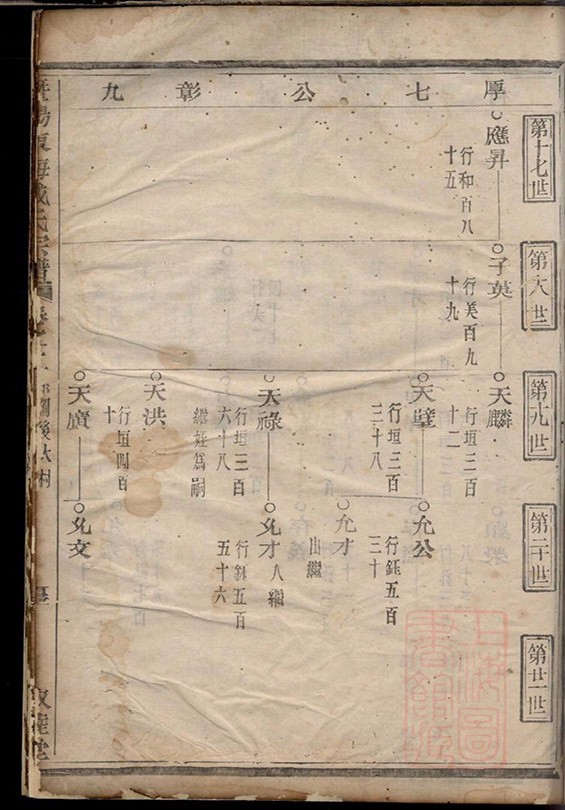 厚七公彰九
第十七世
第十八世
第十九世
第二十世
第廿一世
應昇
行和百八
十五
子英
行美百九
十九
天麟
行垣三百
十二
天璧
行垣三百
三十八
允公
行鈺五百
三十
允才
出繼
天祿
行垣三百
六十八
繼姪為嗣
允才入繼
行鈺五百
五十六
天洪
行垣四百
十
天廣
允文
暨陽東海
氏宗譜
上海圖書館藏